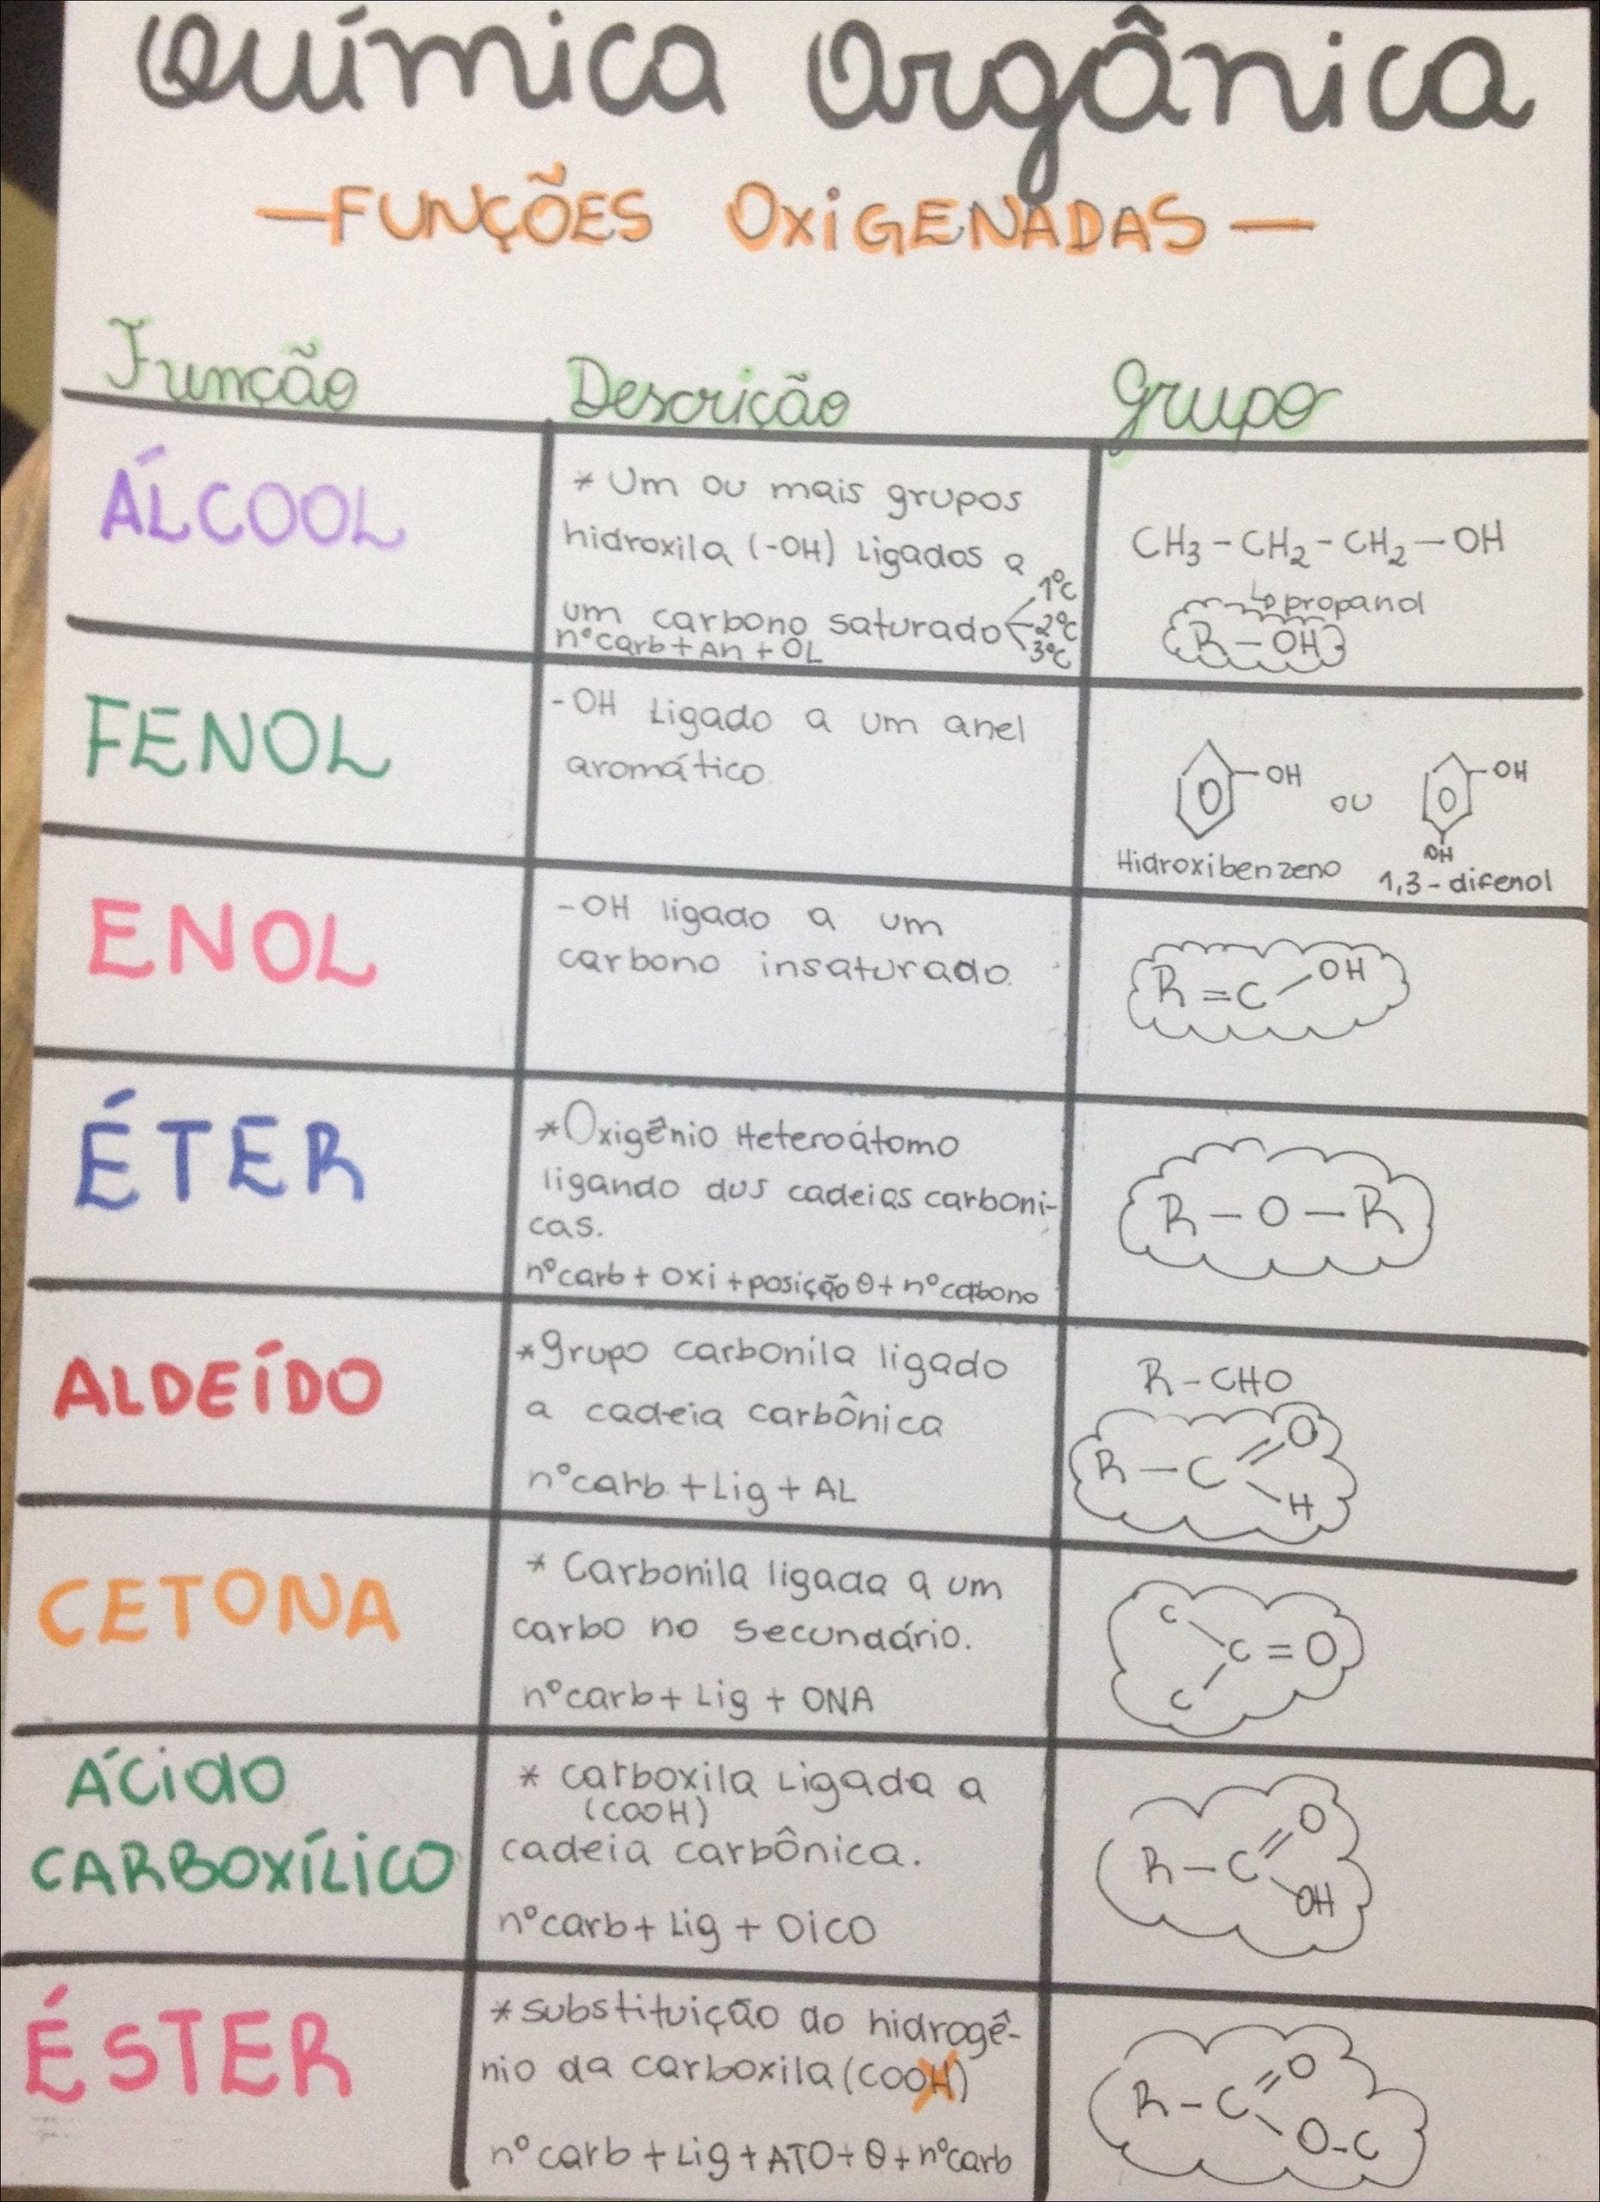 Química Orgânica
—FUNÇÕES OXiGENADAS—
Função Descrição Grupo
ÁLCOOL
* Um ou mais grupos
hidroxila (-OH) Ligados a
um carbono saturado
1ºc
2ºc
3ºc
nºcarb + An + OL
CH3 - CH2 - CH2 - OH
↳ propanol
R - OH
FENOL
- OH Ligado a um anel
aromático
OH
ou
OH
OH
Hidroxibenzeno
1,3 - difenol
ENOL
- OH ligado a um
carbono insaturado.
R = C - OH
ÉTER
*Oxigênio Heteroátomo
ligando dus cadeias carboni-
cas.
nºcarb + oxi + posição θ + nºcarbono
R - O - R
ALDEÍDO
*grupo carbonila ligado
a cadeia carbônica
nºcarb + Lig + AL
R - CHO
O
R - C
H
CETONA
* Carbonila ligada a um
carbo no secundário.
nºcarb + Lig + ONA
C
C = O
C
ÁCido
CARBOXÍLiCO
* carboxila Ligada a
(COOH)
cadeia carbônica.
nºcarb + Lig + OiCO
O
R - C
OH
ÉSTER
*substituição do hidrogê-
nio da carboxila (COOH)
nºcarb + Lig + ATO + θ + nºcarb
O
R - C
O-C